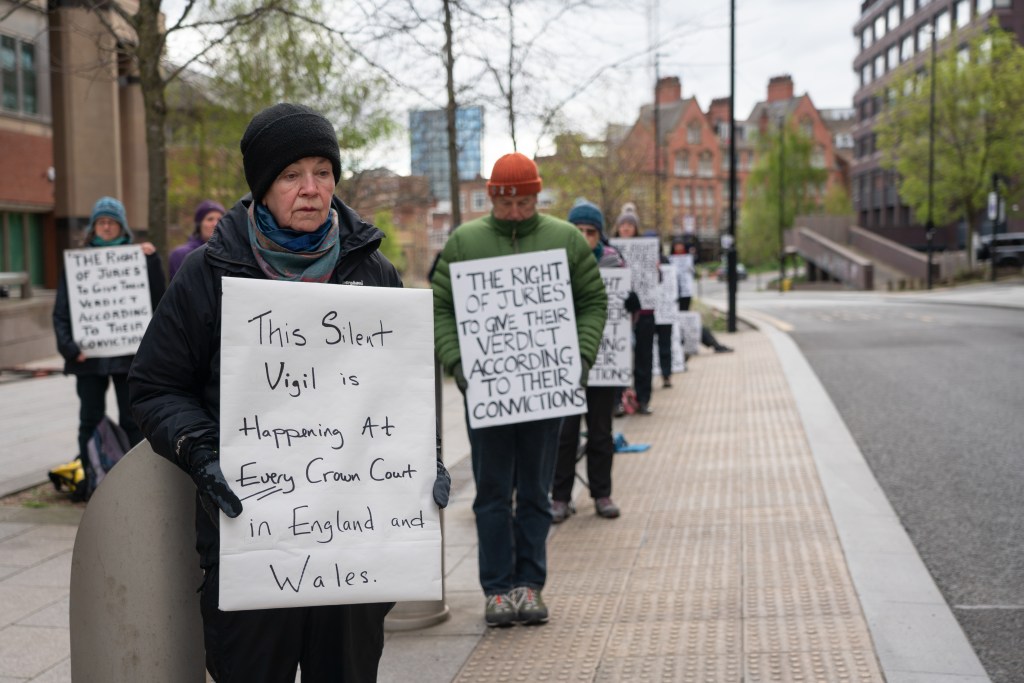 This Silent
Vigil is
Happening At
Every Crown Court
in England and
Wales.
THE RIGHT
OF JURIES
TO GIVE THEIR
VERDICT
ACCORDING
TO THEIR
CONVICTIONS
THE RIGHT
OF JURIES
TO GIVE THEIR
VERDICT
ACCORDING
TO THEIR